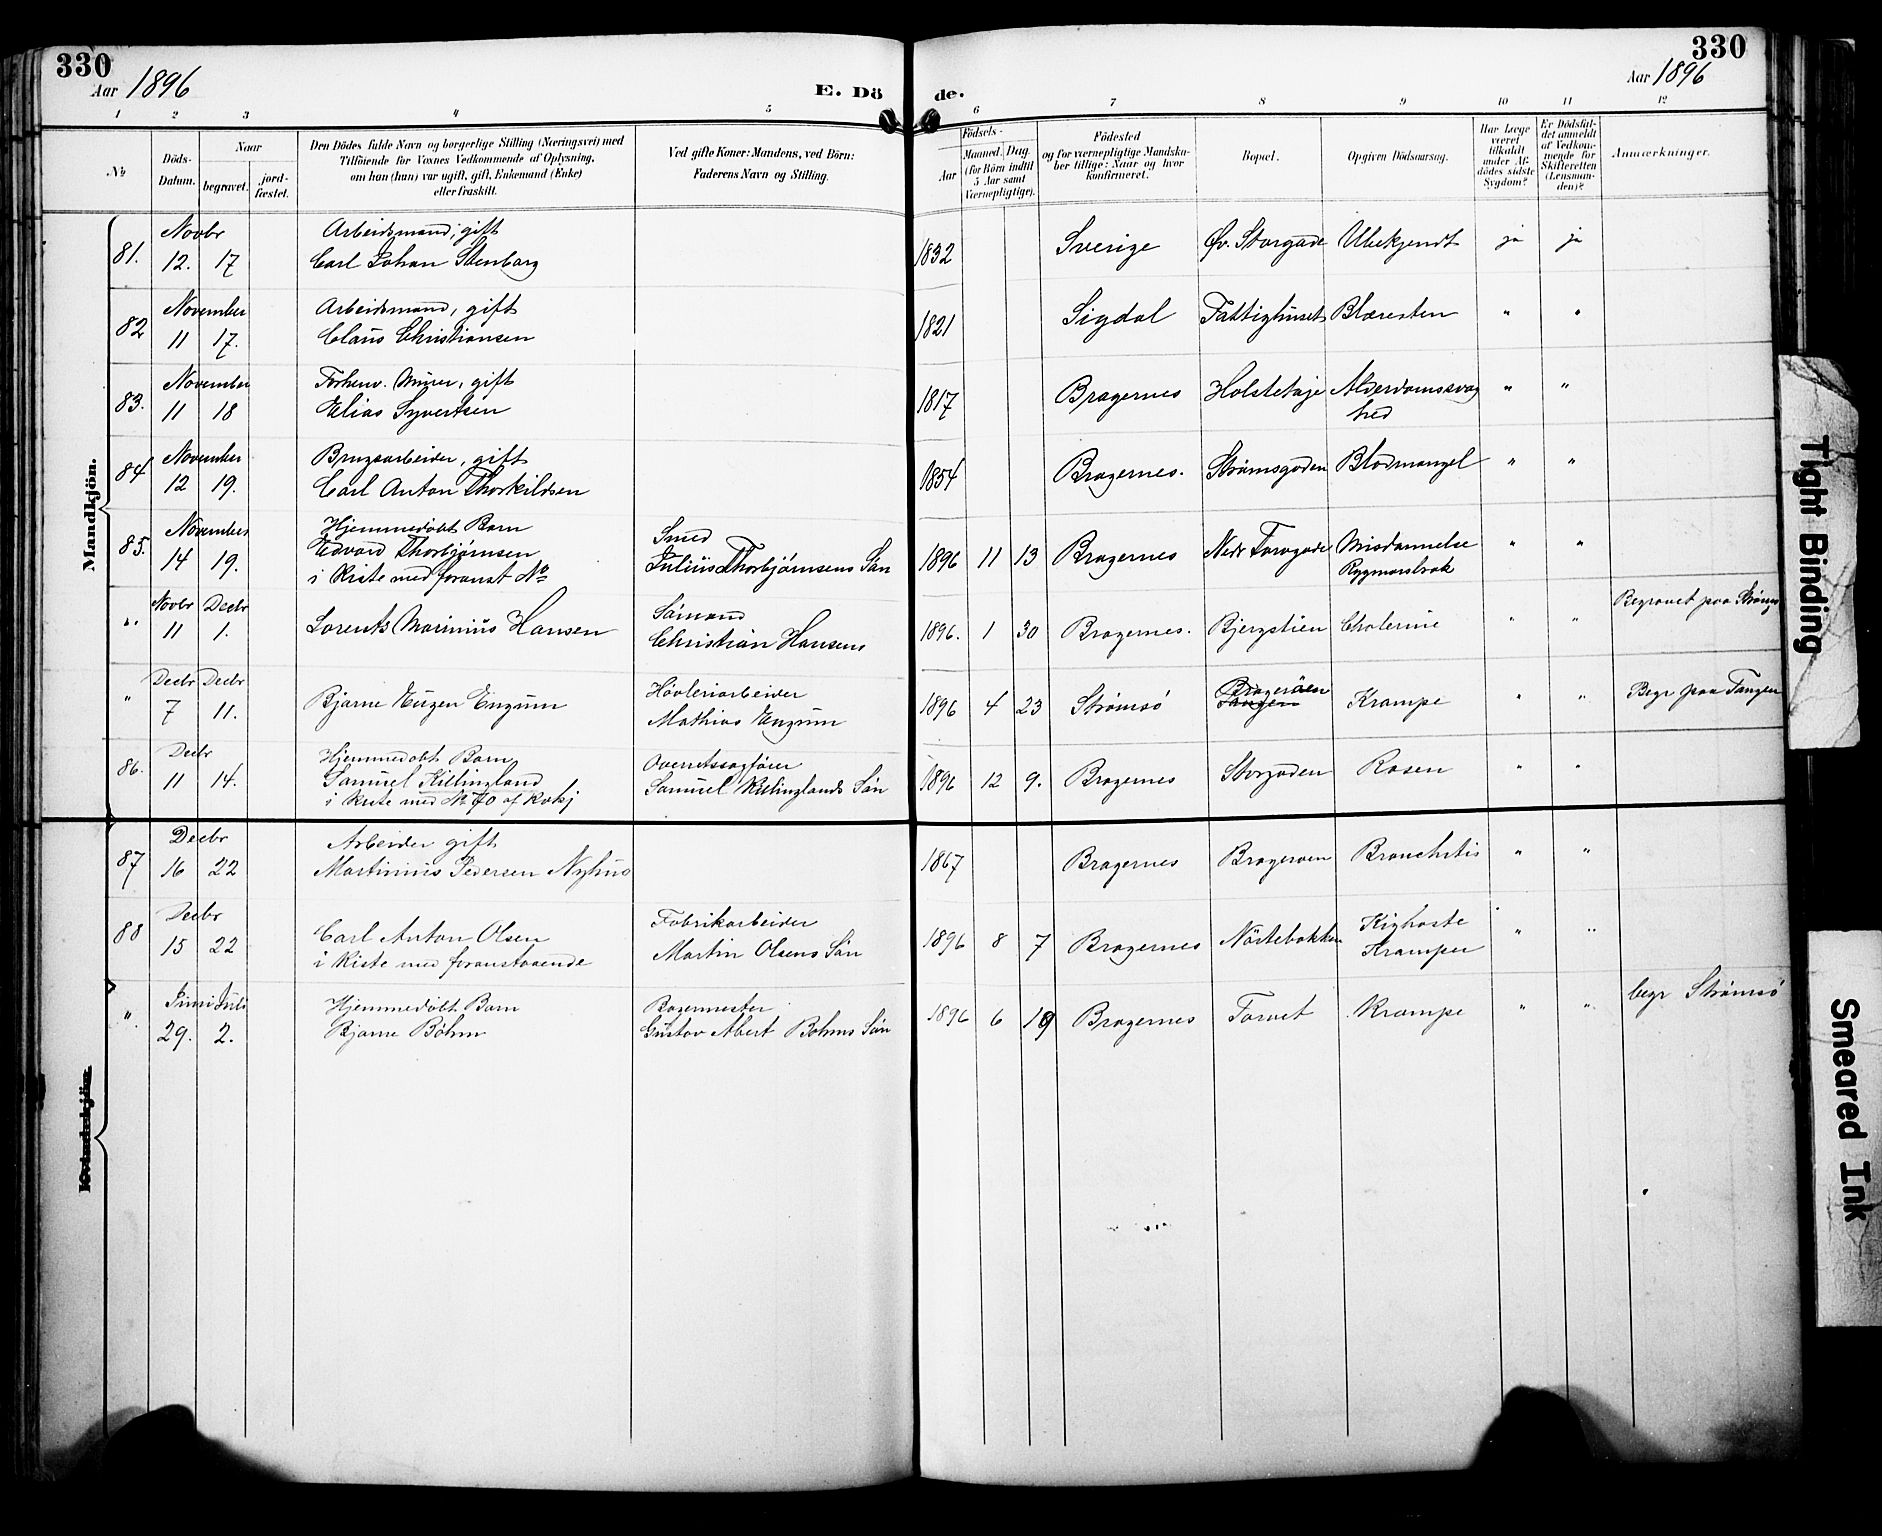 330
Aar 1896
E. Dö
de.
330
Aar 1896
1 2 3 4 5 6 7 8 9 10 11 12
No
Döds-Datum.
Naar
begravet.
jord-fæstet.
Den Dödes fulde Navn og borgerlige Stilling (Næringsvei) med
Tilföiende for Voxnes Vedkommende af Oplysning,
om han (hun) var ugift, gift, Enkemand (Enke)
eller fraskilt.
Ved gifte Koner: Mandens, ved Börn:
Faderens Navn og Stilling.
Födsels-
Aar
Maaned. Dag.
(for Börn indtil
5 Aar samt
Værnepligtige).
Födested
og for værnepligtige Mandska-
ber tillige: Naar og hvor
konfirmeret.
Bopæl.
Opgiven Dödsaarsag.
Har Læge
været
tilkaldt
under Af-
dödes sidste
Sygdom?
Er Dödsfal-
det anmeldt
af Vedkom-
mende for
Skifteretten
(Lensman-
den)?
Anmærkninger.
Mandkjön.
81. Novbr 12. 17 Arbeidsmand, gift
Carl Johan Stenborg 1832 Sverige Øv. Storgade Ubekjendt ja ja
82 November 11 17. Arbeidsmand, gift
Claus Christiansen 1821 Sigdal Fattighuset Blæresten " "
83. November 11 18 Forhenv. Murer, gift
Elias Syvertsen 1817 Bragernes Alderdomssvag
hed " "
84 November 12 19. Brugsarbeider, gift
Carl Anton Thorkildsen 1854 Bragernes. Strømsgaden Blodmangel " "
85. November 14 19. Hjemmedøbt Barn
Edvard Thorbjørnsen
i Kiste med foranst No
Smed
Julius Thorbjørnsens Søn 1896 11 13 Bragernes Nedr Torvgade Misdannelse
Rygmarsbrok " "
" Novbr 11 Decbr 1. Lorents Marinius Hansen
Sømand
Christian Hansens 1896. 1 30 Bragernes. Bjergstien Cholerine " " Begravet paa Strømsø
" Decbr 7 Decbr 11. Bjarne Eugen Engum
Høvleriarbeider
Mathias Engum 1896 4 23 Strømsø Bragerøen
Tangen Krampe " " Begr paa Tangen
86. Decbr 11 14. Hjemmedøbt Barn
Samuel Killingland
i Kiste med No 70 af Kvkj
Overretssagfører
Samuel Killinglands Søn 1896 12 9. Bragernes Storgaden Rosen " "
87 Decbr 16 22 Arbeider gift
Martinius Pedersen Nyhus 1867 Bragernes Bragerøen Bronchitis " "
88 Decbr 15 22 Carl Anton Olsen
i Kiste med foranstaaende
Fabrikarbeider
Martin Olsens Søn 1896 8 7 Bragernes Nørstebakken Kighoste
Kramper " "
" Juni 29. Juli 2. Hjemmedøbt Barn
Bjarne Böhm
Bagermester
Gustav Albert Bøhms Søn 1896 6 19 Bragernes Torvet Krampe " " begr Strømsø
Kvindekjön.
Tight Binding
Smeared Ink